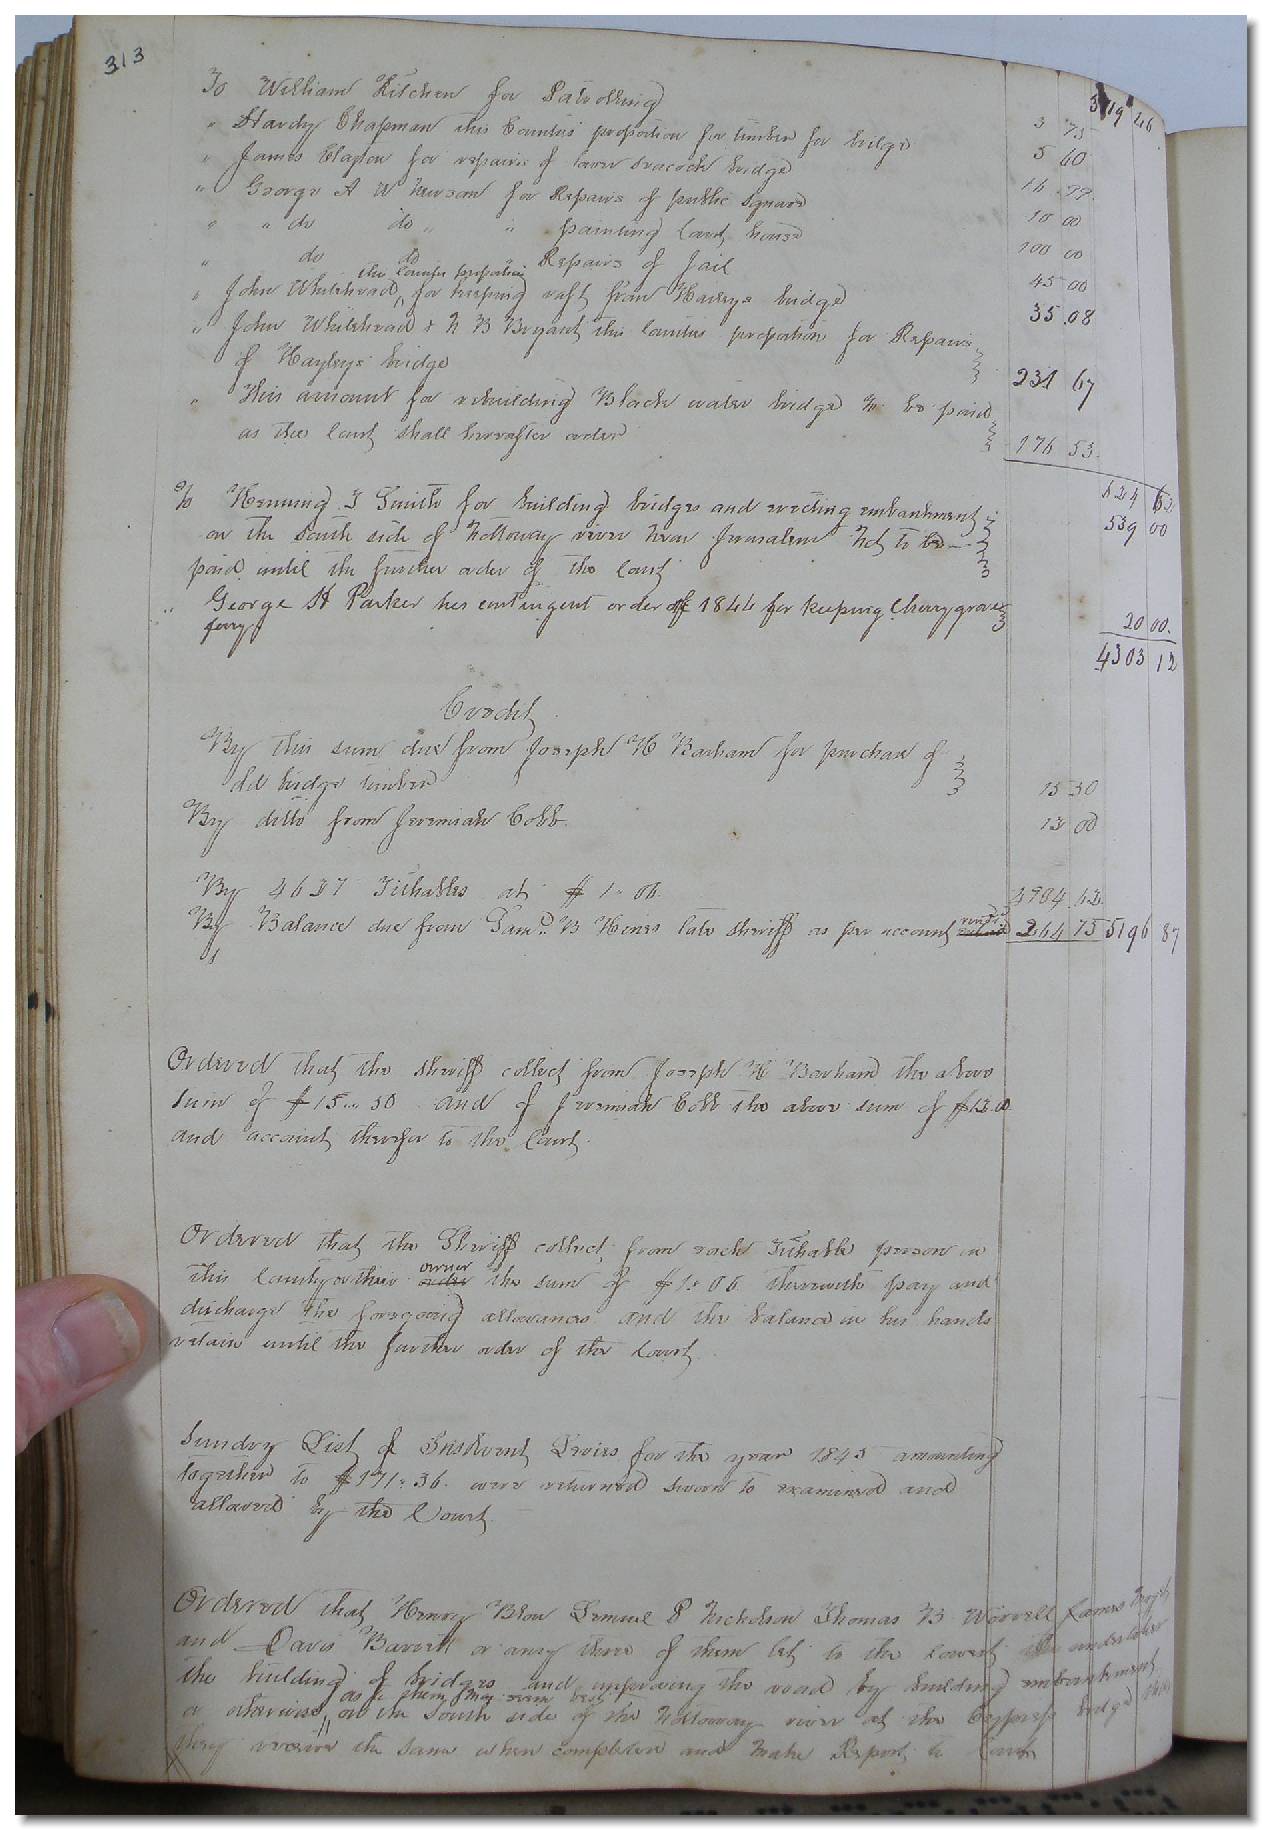 313
3119 46
To William Kitchen for Patrolling 3 75
" Hardy Chapman this Counties proportion for timber for bridge 5 60
" James Clayton for repairs of lower Seacock bridge 16 99
" George A W Newsom for Repairs of public square 10 00
" " do do " " painting Court house 100 00
" do do Repairs of Jail 45 00
" John Whitehead, the Counties proportion for keeping raft from Haileys bridge 35.08
" John Whitehead & N B Bryant this Counties proportion for Repairs
of Hayleys bridge 231 67
" This amount for rebuilding Black water bridge to be paid
as the Court shall hereafter order 176 53
624 62
To Henning T Smith for building bridges and erecting embankment 539 00
on the South side of Nottoway river near Jerusalem Not to be
paid until the further order of the Court
" George H Parker his contingent order of 1844 for keeping Cherrygrove
ferry 20 00.
4303 12
Credit
By this sum due from Joseph H Barham for purchase of
old bridge timber 15 50
By ditto from Jeremiah Cobb. 13 00
By 4637 Tithables at $ 1.. 06 4904 62
By Balance due from Saml. B Hines late sheriff as per account 264 75 5196 87
Ordered that the sheriff collect from Joseph H Barham the above
sum of $15...50 and of Jeremiah Cobb the above sum of $13.00
and account therefor to the Court.
Ordered that the Sheriff collect from each Tithable person in
this County or their owner the sum of $1: 06 therewith pay and
discharge the foregoing allowances and the balance in his hands
retain until the further order of the Court.
Sundry List of Insolvent Levies for the year 1843 amounting
together to $171:36. were returned sworn to examined and
allowed by the Court.
Ordered that Henry Blow Lemuel P Nicholson Thomas B Worrell James
and Davis Barrett or any three of them let to the lowest undertaker
the building of bridges and improving the road by building embankment
or otherwise, as to them may seem best on the South side of the Nottoway river at the Cypress bridge that
they receive the same when completed and make Report to Court